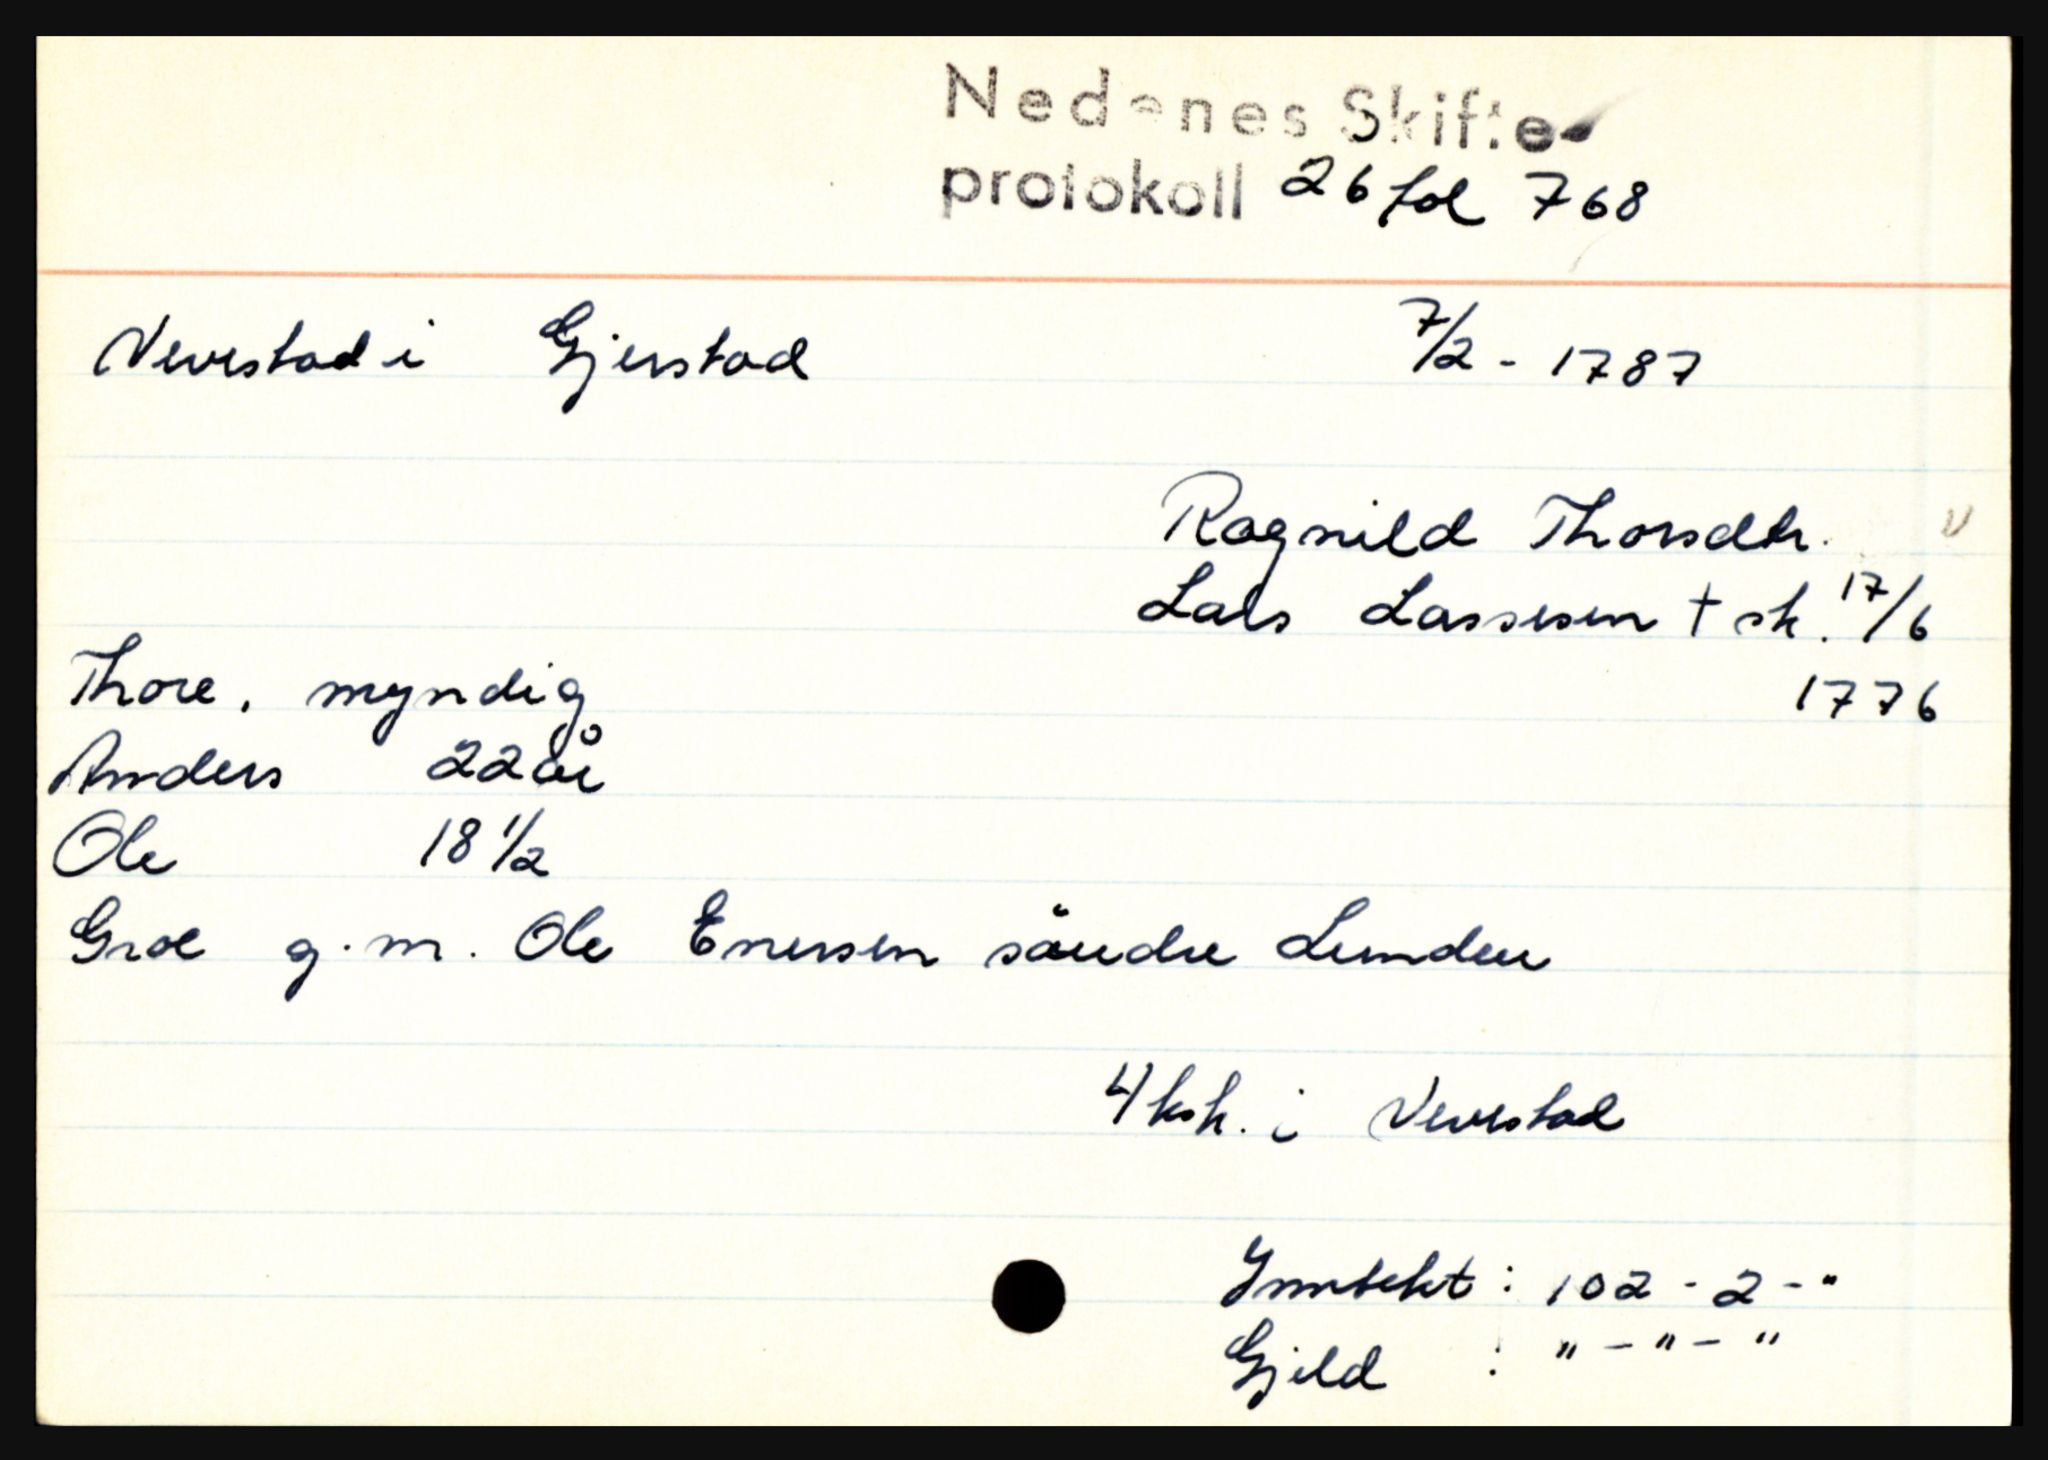 Nedenes Skifte-
protokoll 26 fol 768
Vevestad i Gjerstad 7/2 - 1787
Ragnild Thorsdtr.
Lars Lassesen + sk. 17/6
1776
Thore, myndig
Anders 22 år
Ole 18 1/2
Groe g.m. Ole Enersen söndre Lunden
4 ksh. i Vevestad
Inntekt : 102 - 2 - "
Gjeld : " - " - "